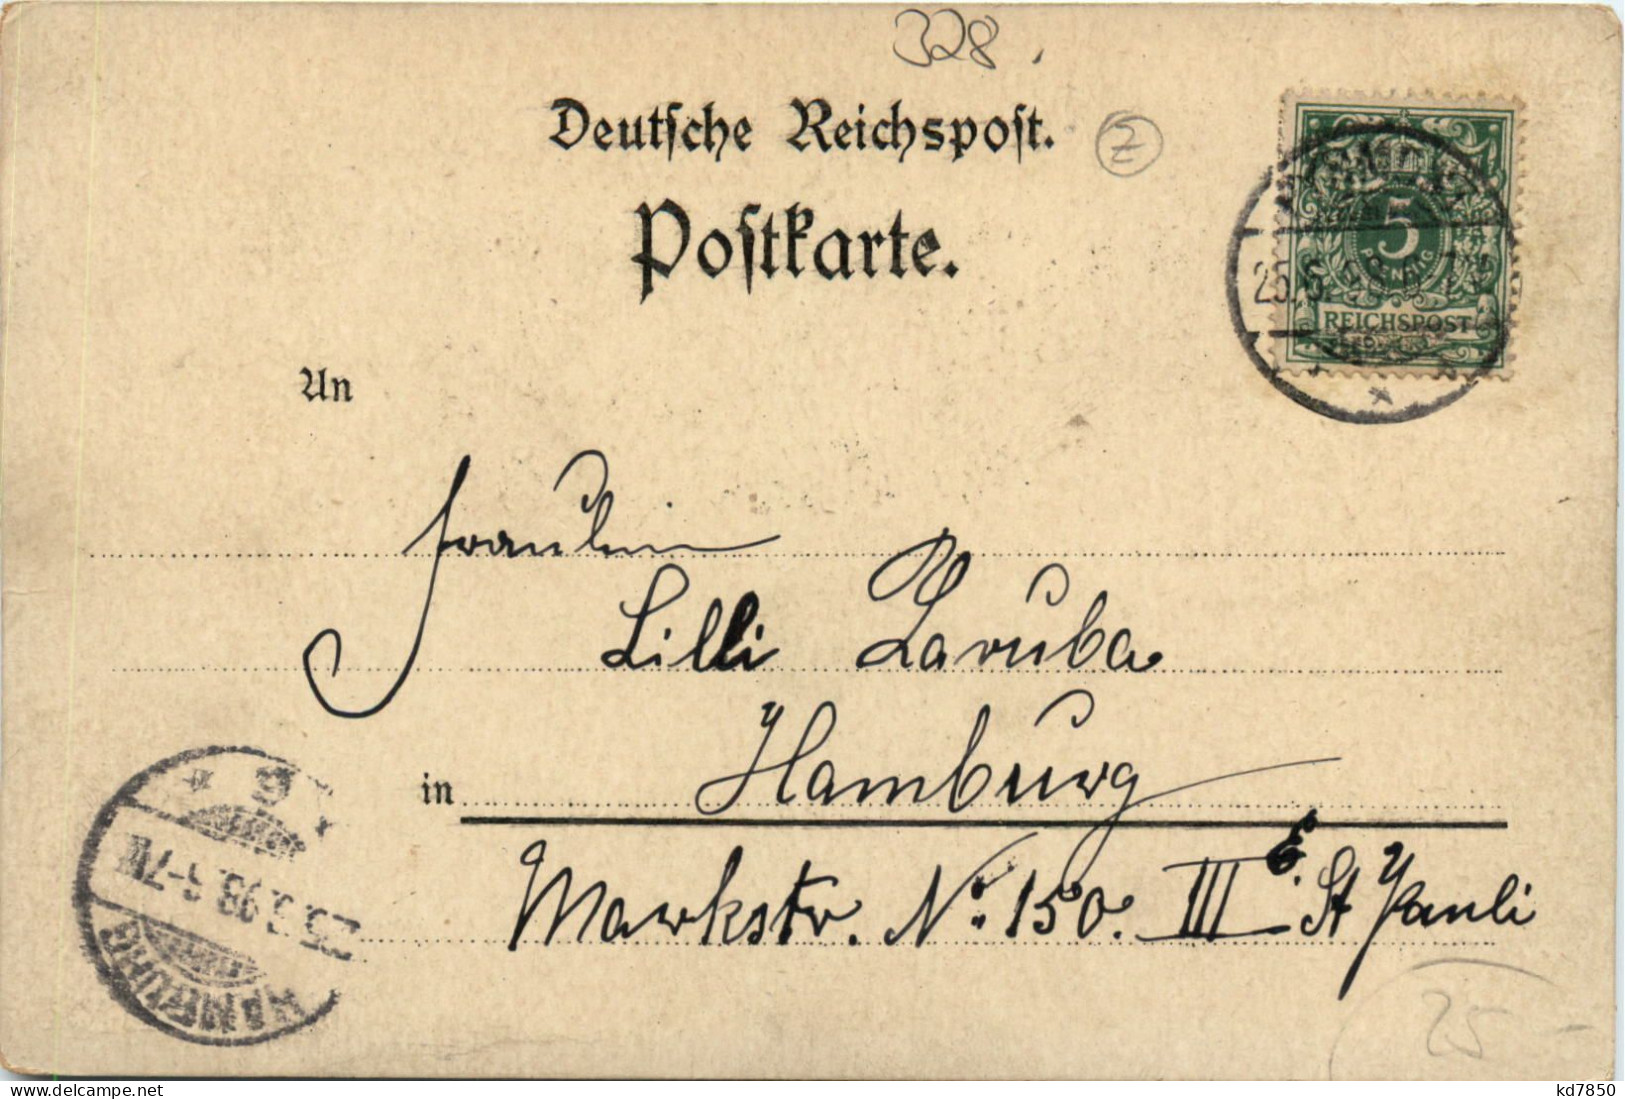 328.
Deutsche Reichspost.
Z
Postkarte.
5
PFENNIG
REICHSPOST
An
Fräulein
Lilli Laruba
in Hamburg
Markstr. No. 150. III E. St Pauli
HAMBURG
25.5.98. 6-7N
25-
kd7850